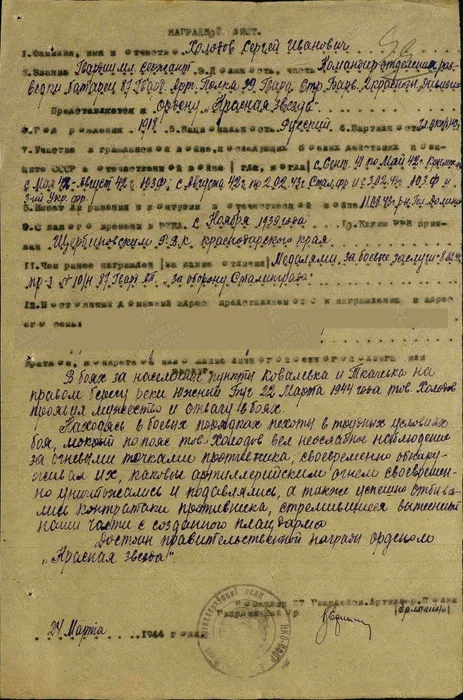 НАГРАДНОЙ ЛИСТ.
1. Фамилия, имя и отчество Холодов Сергей Иванович
2. Звание Гвардии мл. сержант 3. Должность, часть Командир отделения раз-
ведки батареи 87 Гвард. Арт. Полка 39 Гвард. Стр.
Представляется к ордену „Красная звезда“
4. Год рождения 5. Национальность Русский 6. Партийность
7. Участие в гражданской войне, последующих боевых действиях по за-
щите СССР и отечественной войне (где, когда) с Сент. 41 по Май 42г
с Мая 42 - Август 42г ЮЗФ, с Августа 42г по 2.02.43г Стал.фр и с 3.02.43г ЮЗФ и
3-ий Укр. фр.
8. Имеет ли ранения и контузии в отечественной войне
9. С какого времени в РККА с Ноября 1939 года 10. Каким РВК приз-
ван Щербиновским РВК Краснодарского края
11. Чем ранее награжден (за какие отличия) Медалями „за боевые заслуги“
пр-з №10/н 87 Гвар АП „за оборону Сталинграда“
12. Постоянный домашний адрес представляемого к награждению и адрес
его семьи:
Краткое, конкретное изложение личного боевого подвига или
В боях за населенные пункты Ковалевка и Ткачевка на
правом берегу реки Южный Буг 22 Марта 1944 года тов. Холодов
проявил мужество и отвагу в боях.
Находясь в боевых порядках пехоты в трудных условиях
боя, мокрый по пояс тов. Холодов вел неослабное наблюдение
за огневыми точками противника, своевременно обнару-
живал их, каковые артиллерийским огнем своевремен-
но уничтожались и подавлялись, а также успешно отбива-
лись контратаки противника, стремившиеся вытеснить
наши части с созданного плацдарма
Достоин правительственной награды орденом
„Красная звезда“
Командир 87 Гвардейск. Артиллер. Полка
Гвардии майор
24 Марта 1944 года